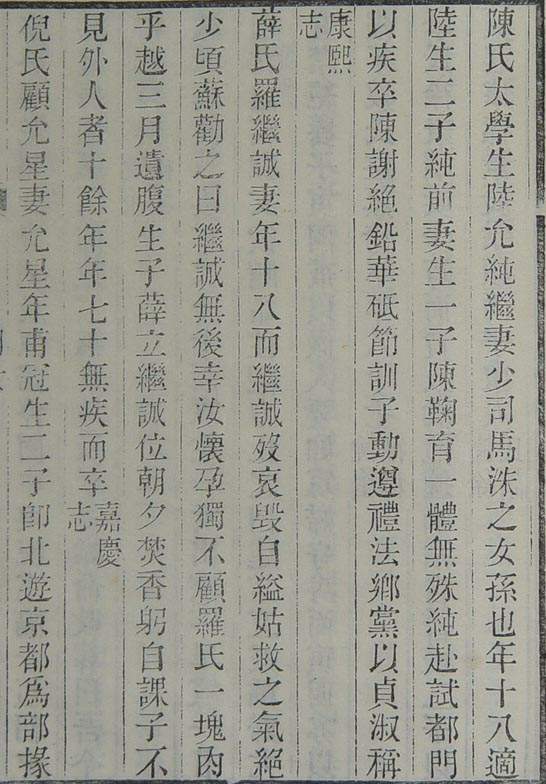 陳氏太學生陸允純繼妻少司馬洙之女孫也年十八適
陸生三子純前妻生一子陳鞠育一體無殊純赴試都門
以疾卒陳謝絕鉛華砥節訓子動遵禮法鄉黨以貞淑稱
康熙志
薛氏羅繼誠妻年十八而繼誠歿哀毀自縊姑救之氣絕
少頃蘇勸之曰繼誠無後幸汝懷孕獨不顧羅氏一塊肉
乎越三月遺腹生子薛立繼誠位朝夕焚香躬自課子不
見外人者十餘年年七十無疾而卒嘉慶志
倪氏顧允星妻允星年甫冠生二子卽北遊京都爲部掾